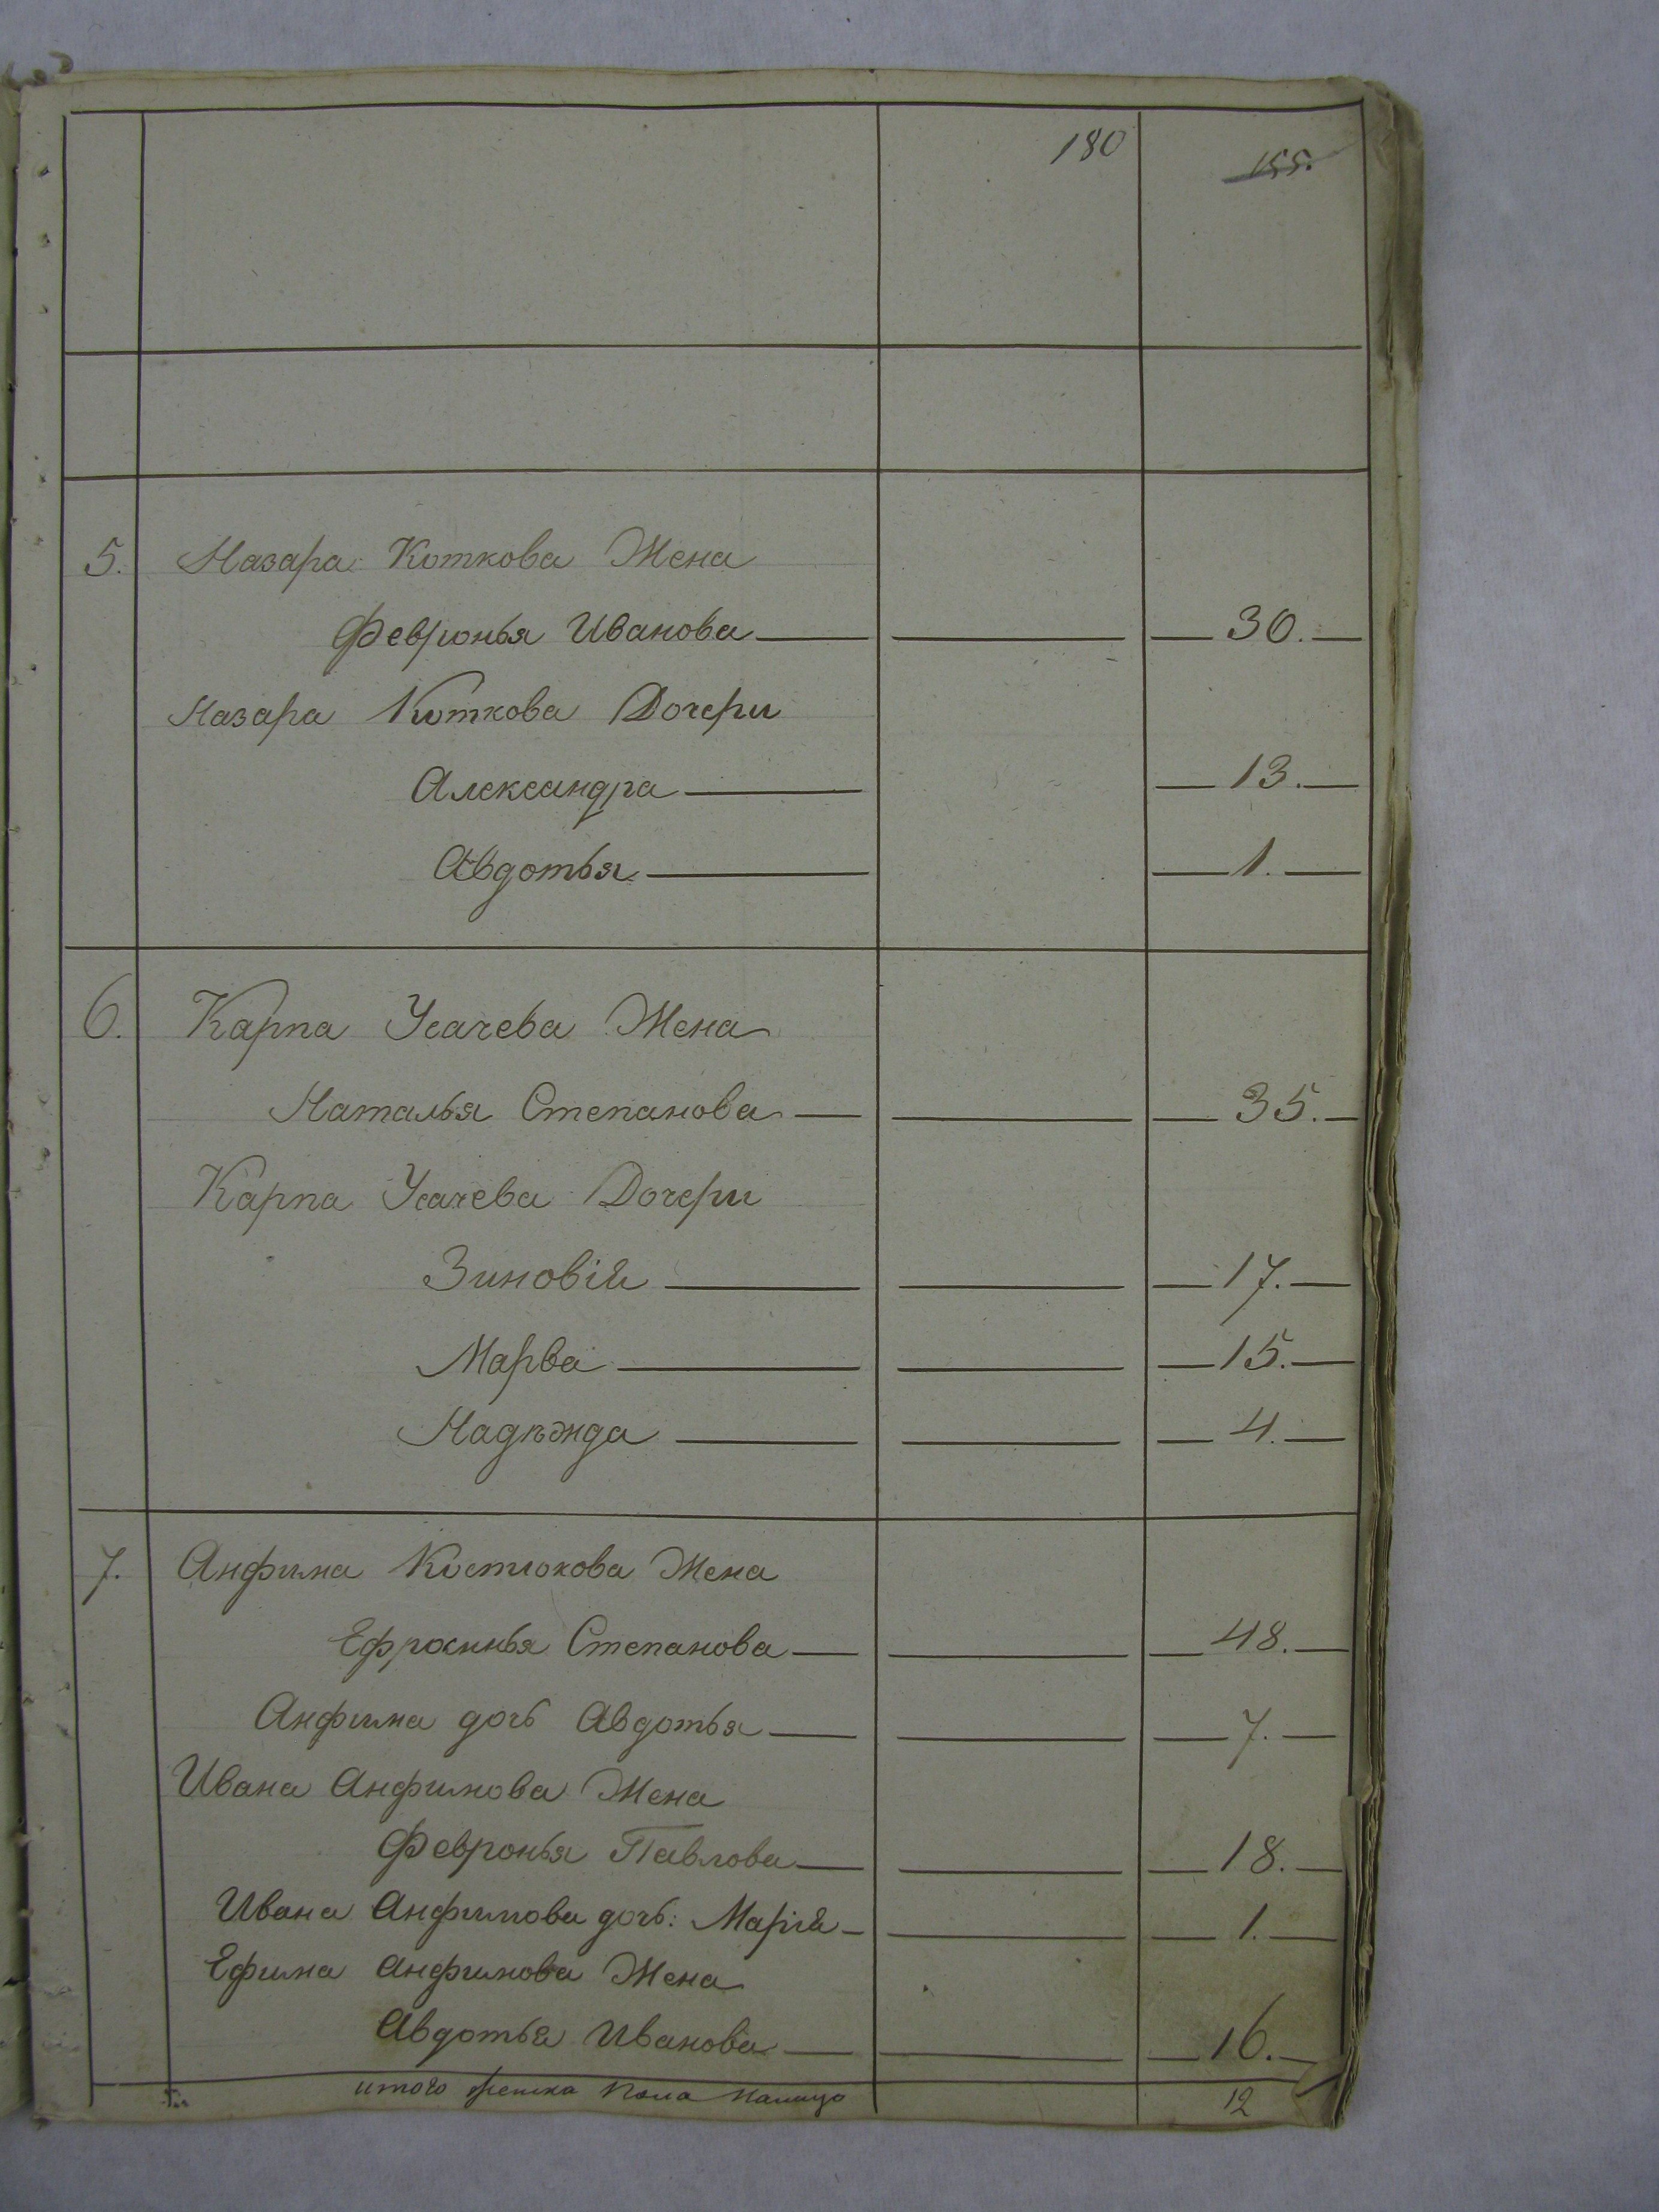 180 155.
5. Назара Коткова Жена
Февронья Иванова 30.
Назара Коткова Дочери
Александра 13.
Авдотья 1.
6. Карпа Усачева Жена
Наталья Степанова 35.
Карпа Усачева Дочери
Зиновія 17.
Марва 15.
Надѣжда 4.
7. Анфима Костюкова Жена
Ефросинья Степанова 48.
Анфима дочь Авдотья 7.
Ивана Анфимова Жена
Февронья Павлова 18.
Ивана Анфимова дочь: Марія 1.
Ефима Анфимова Жена
Авдотья Иванова 16.
итого женска пола налицо 12